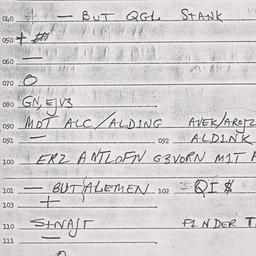 040 + — BUT QGL STANK
050 +
060 —
070 O
080 GN, EJV3
090 MOT ALC/ALDING AVEK/AROJZ
091 — 092 ALDINK
100 ERZ ANTLOFTN G3VORN MIT
101 — BUT/ALEMEN 102 = QI $
103 +
110 STNAJT FINDER T
111 —